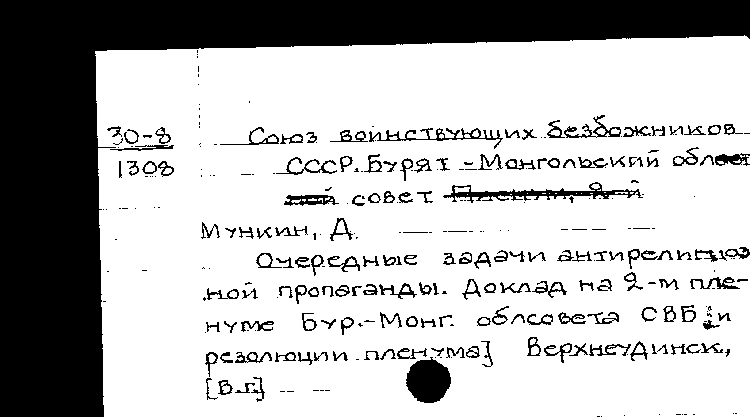 30-8 Союз воинствующих безбожников
1308 СССР. Бурят-Монгольский обл
совет
Мункин, Д.
Очередные задачи антирелигиоз
ной пропаганды. Доклад на 2-м пле-
нуме Бур.-Монг. облсовета СВБ [и
резолюции пленума] Верхнеудинск,
[В.г.]